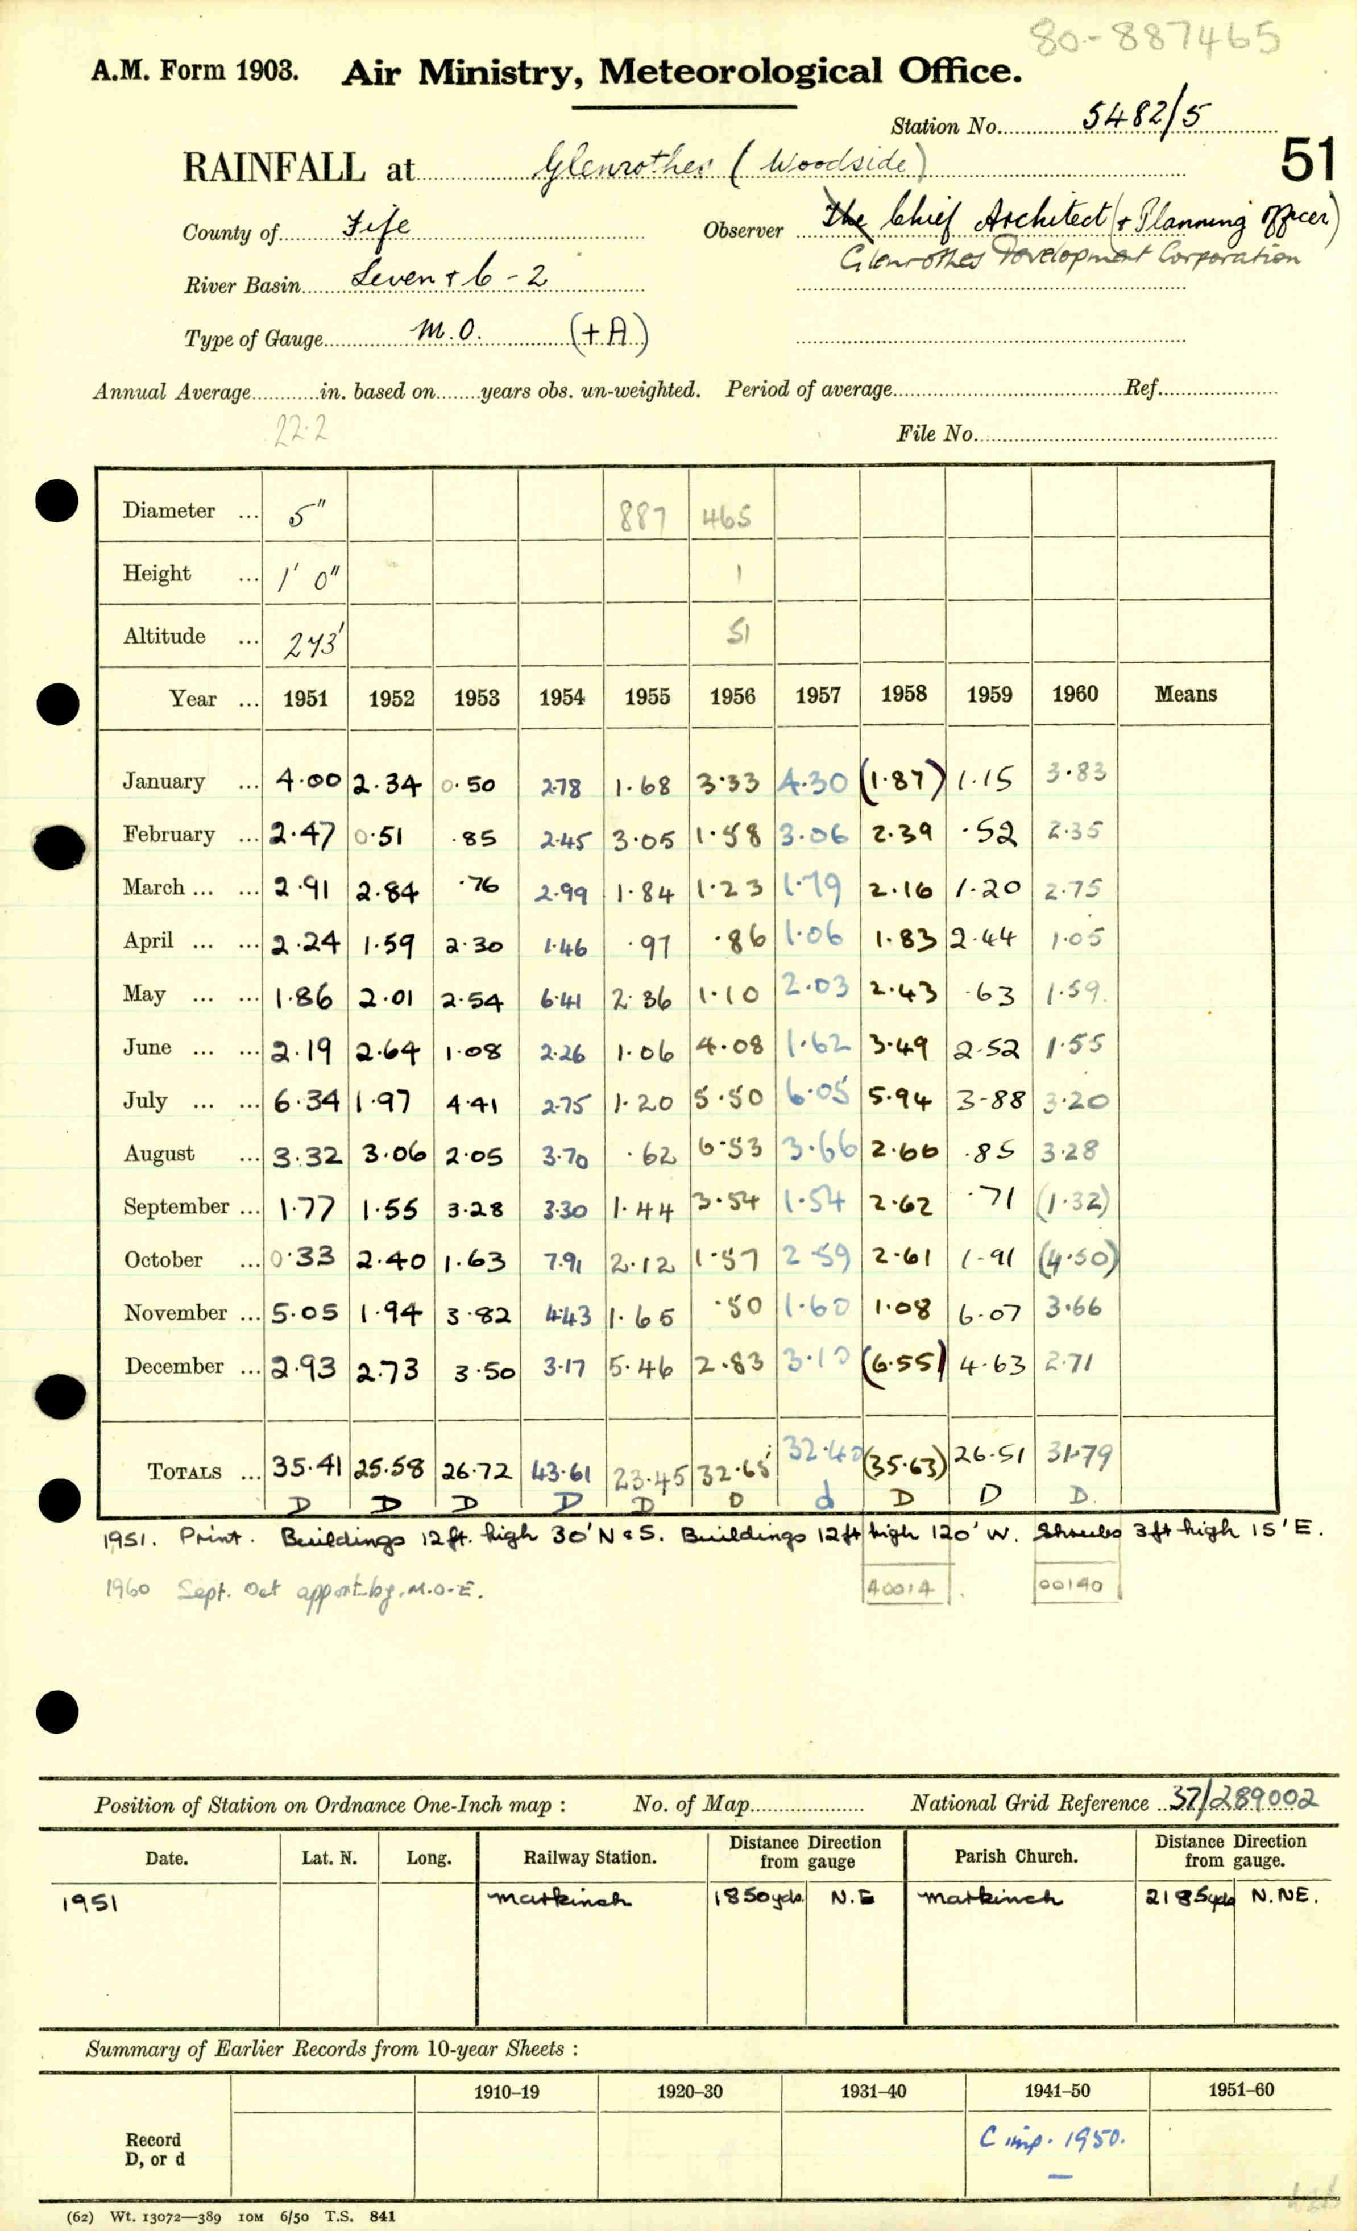 80-887465
A.M. Form 1903. Air Ministry, Meteorological Office.
Station No. 5482/5
51
RAINFALL at Glenrothes (Woodside)
County of Fife Observer The Chief Architect (+ Planning Officer)
Glenrothes Development Corporation
River Basin Leven + 6 - 2
Type of Gauge M.O. (+A)
Annual Average in. based on years obs. un-weighted. Period of average Ref.
22.2
File No.
Diameter ... 5" 887 465
Height ... 1' 0" 1
Altitude ... 273' 51
Year ... 1951 1952 1953 1954 1955 1956 1957 1958 1959 1960 Means
January ... 4.00 2.34 0.50 2.78 1.68 3.33 4.30 (1.87) 1.15 3.83
February ... 2.47 0.51 .85 2.45 3.05 1.58 3.06 2.39 .52 2.35
March ... ... 2.91 2.84 .76 2.99 1.84 1.23 1.79 2.16 1.20 2.75
April ... ... 2.24 1.59 2.30 1.46 .97 .86 1.06 1.83 2.44 1.05
May ... ... 1.86 2.01 2.54 6.41 2.36 1.10 2.03 2.43 .63 1.59
June ... ... 2.19 2.64 1.08 2.26 1.06 4.08 1.62 3.49 2.52 1.55
July ... ... 6.34 1.97 4.41 2.75 1.20 5.50 6.05 5.94 3.88 3.20
August ... 3.32 3.06 2.05 3.70 .62 6.53 3.66 2.66 .85 3.28
September ... 1.77 1.55 3.28 3.30 1.44 3.54 1.54 2.62 .71 (1.32)
October ... 0.33 2.40 1.63 7.91 2.12 1.57 2.59 2.61 1.91 (4.50)
November ... 5.05 1.94 3.82 4.43 1.65 .50 1.60 1.08 6.07 3.66
December ... 2.93 2.73 3.50 3.17 5.46 2.83 3.10 (6.55) 4.63 2.71
TOTALS ... 35.41 25.58 26.72 43.61 23.45 32.65 32.40 (35.63) 26.51 31.79
D D D D D D d D D D.
1951. Print. Buildings 12ft. high 30' N & S. Buildings 12ft high 120' W. Shrubs 3ft high 15' E.
1960 Sept. Oct apport. by. M.O.E. 40014 00140
Position of Station on Ordnance One-Inch map : No. of Map National Grid Reference 37/289002
Date. Lat. N. Long. Railway Station. Distance Direction from gauge Parish Church. Distance Direction from gauge.
1951 Markinch 1850yds N.E Markinch 2185yds N.NE.
Summary of Earlier Records from 10-year Sheets :
1910–19 1920–30 1931–40 1941–50 1951–60
Record
D, or d
C imp. 1950.
(62) Wt. 13072—389 10M 6/50 T.S. 841